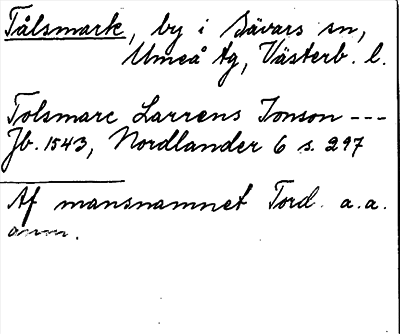 Tålsmark, by i Sävars sn,
Umeå tg, Västerb. l.
Tolsmarc Larrens Jonson ---
Jb. 1543, Nordlander 6 s. 297
Af mansnamnet Tord. a.a.
anm.